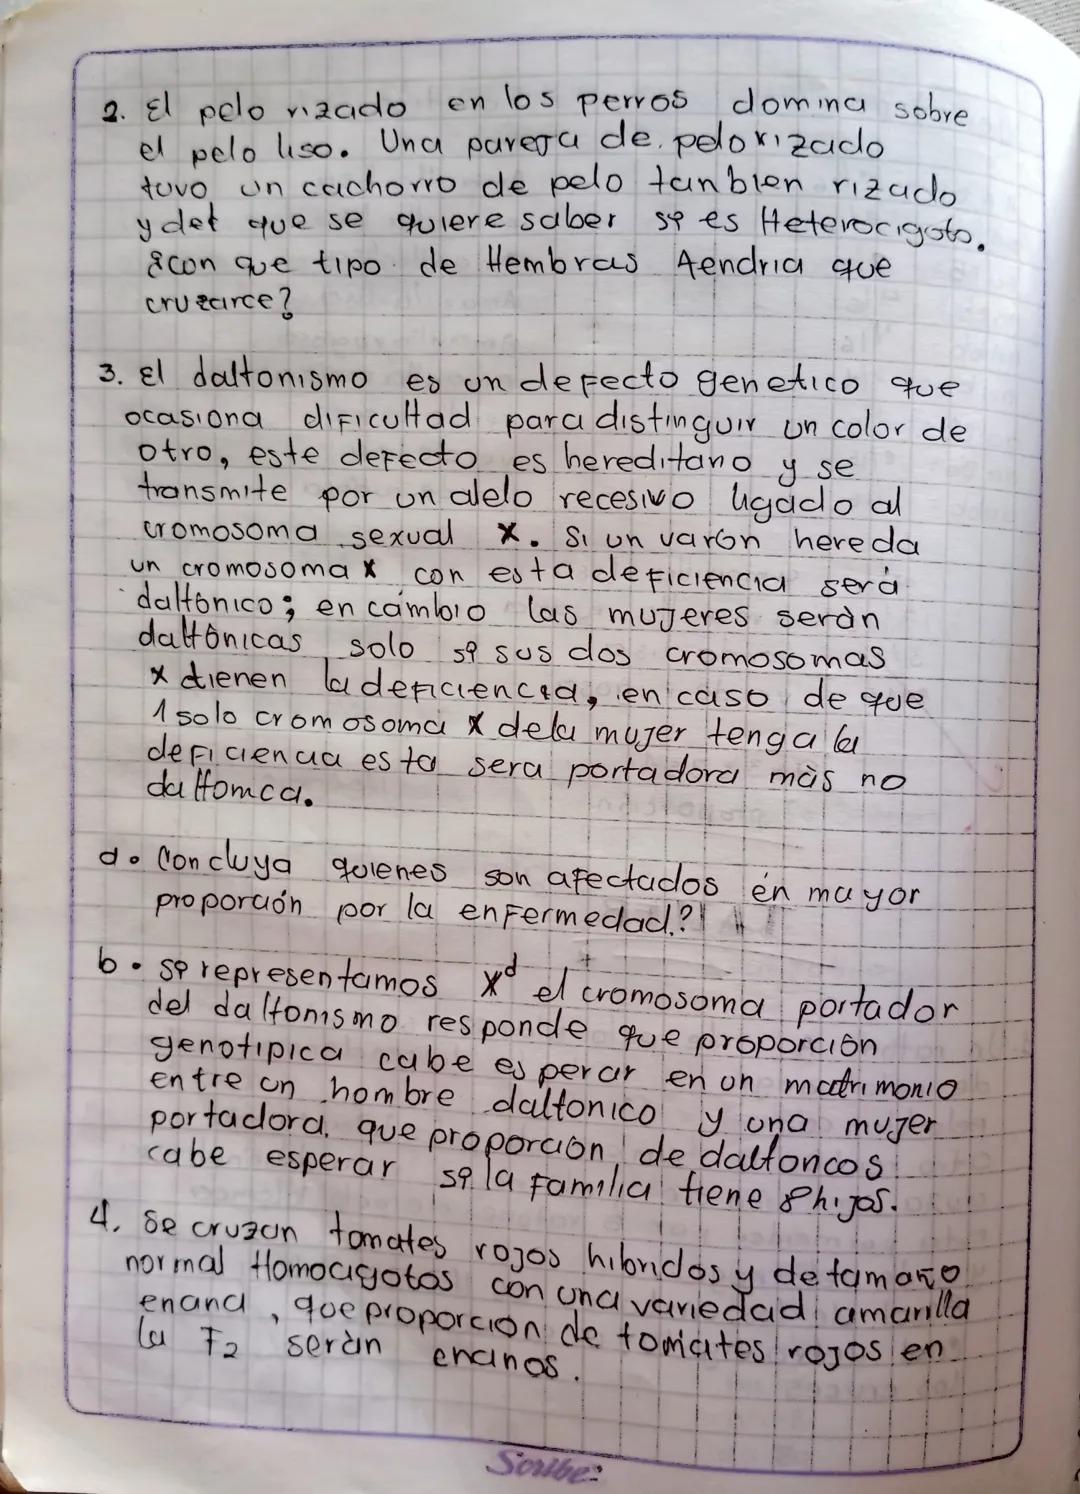 2. El pelo rizado en los perros domina sobre
el pelo liso. Una pareja de pelo rizado
tuvo un cachorro de pelo tanbien rizado
y del que se quiere saber si es Heterocigoto.
¿con que tipo de Hembras tendria que
cruzarce?
3. El daltonismo es un defecto genetico que
ocasiona dificultad para distinguir un color de
otro, este defecto es hereditario y se
transmite por un alelo recesivo ligado al
cromosoma sexual X. Si un varón hereda
un cromosoma X con esta deficiencia será
daltónico; en cámbio las mujeres seràn
daltônicas solo si sus dos cromosomas
X tienen la deficiencia, en caso de que
1 solo cromosoma X dela mujer tenga la
deficiencia esta sera portadora màs no
daltonica.
a. Concluya quienes son afectados en mayor
proporción por la enfermedad?
b. si representamos X^d el cromosoma portador
del daltonismo responde que proporción
genotipica cabe esperar en un matrimonio
entre un hombre daltonico y una mujer
portadora. que proporción de daltoncos
cabe esperar si la familia tiene 8 hijos.
4. Se cruzan tomates rojos hibridos y de tamaño
normal Homocigotos con una variedad amarilla
enana, que proporcion de tomates rojos en
la F2 seràn enanos.
Scribe